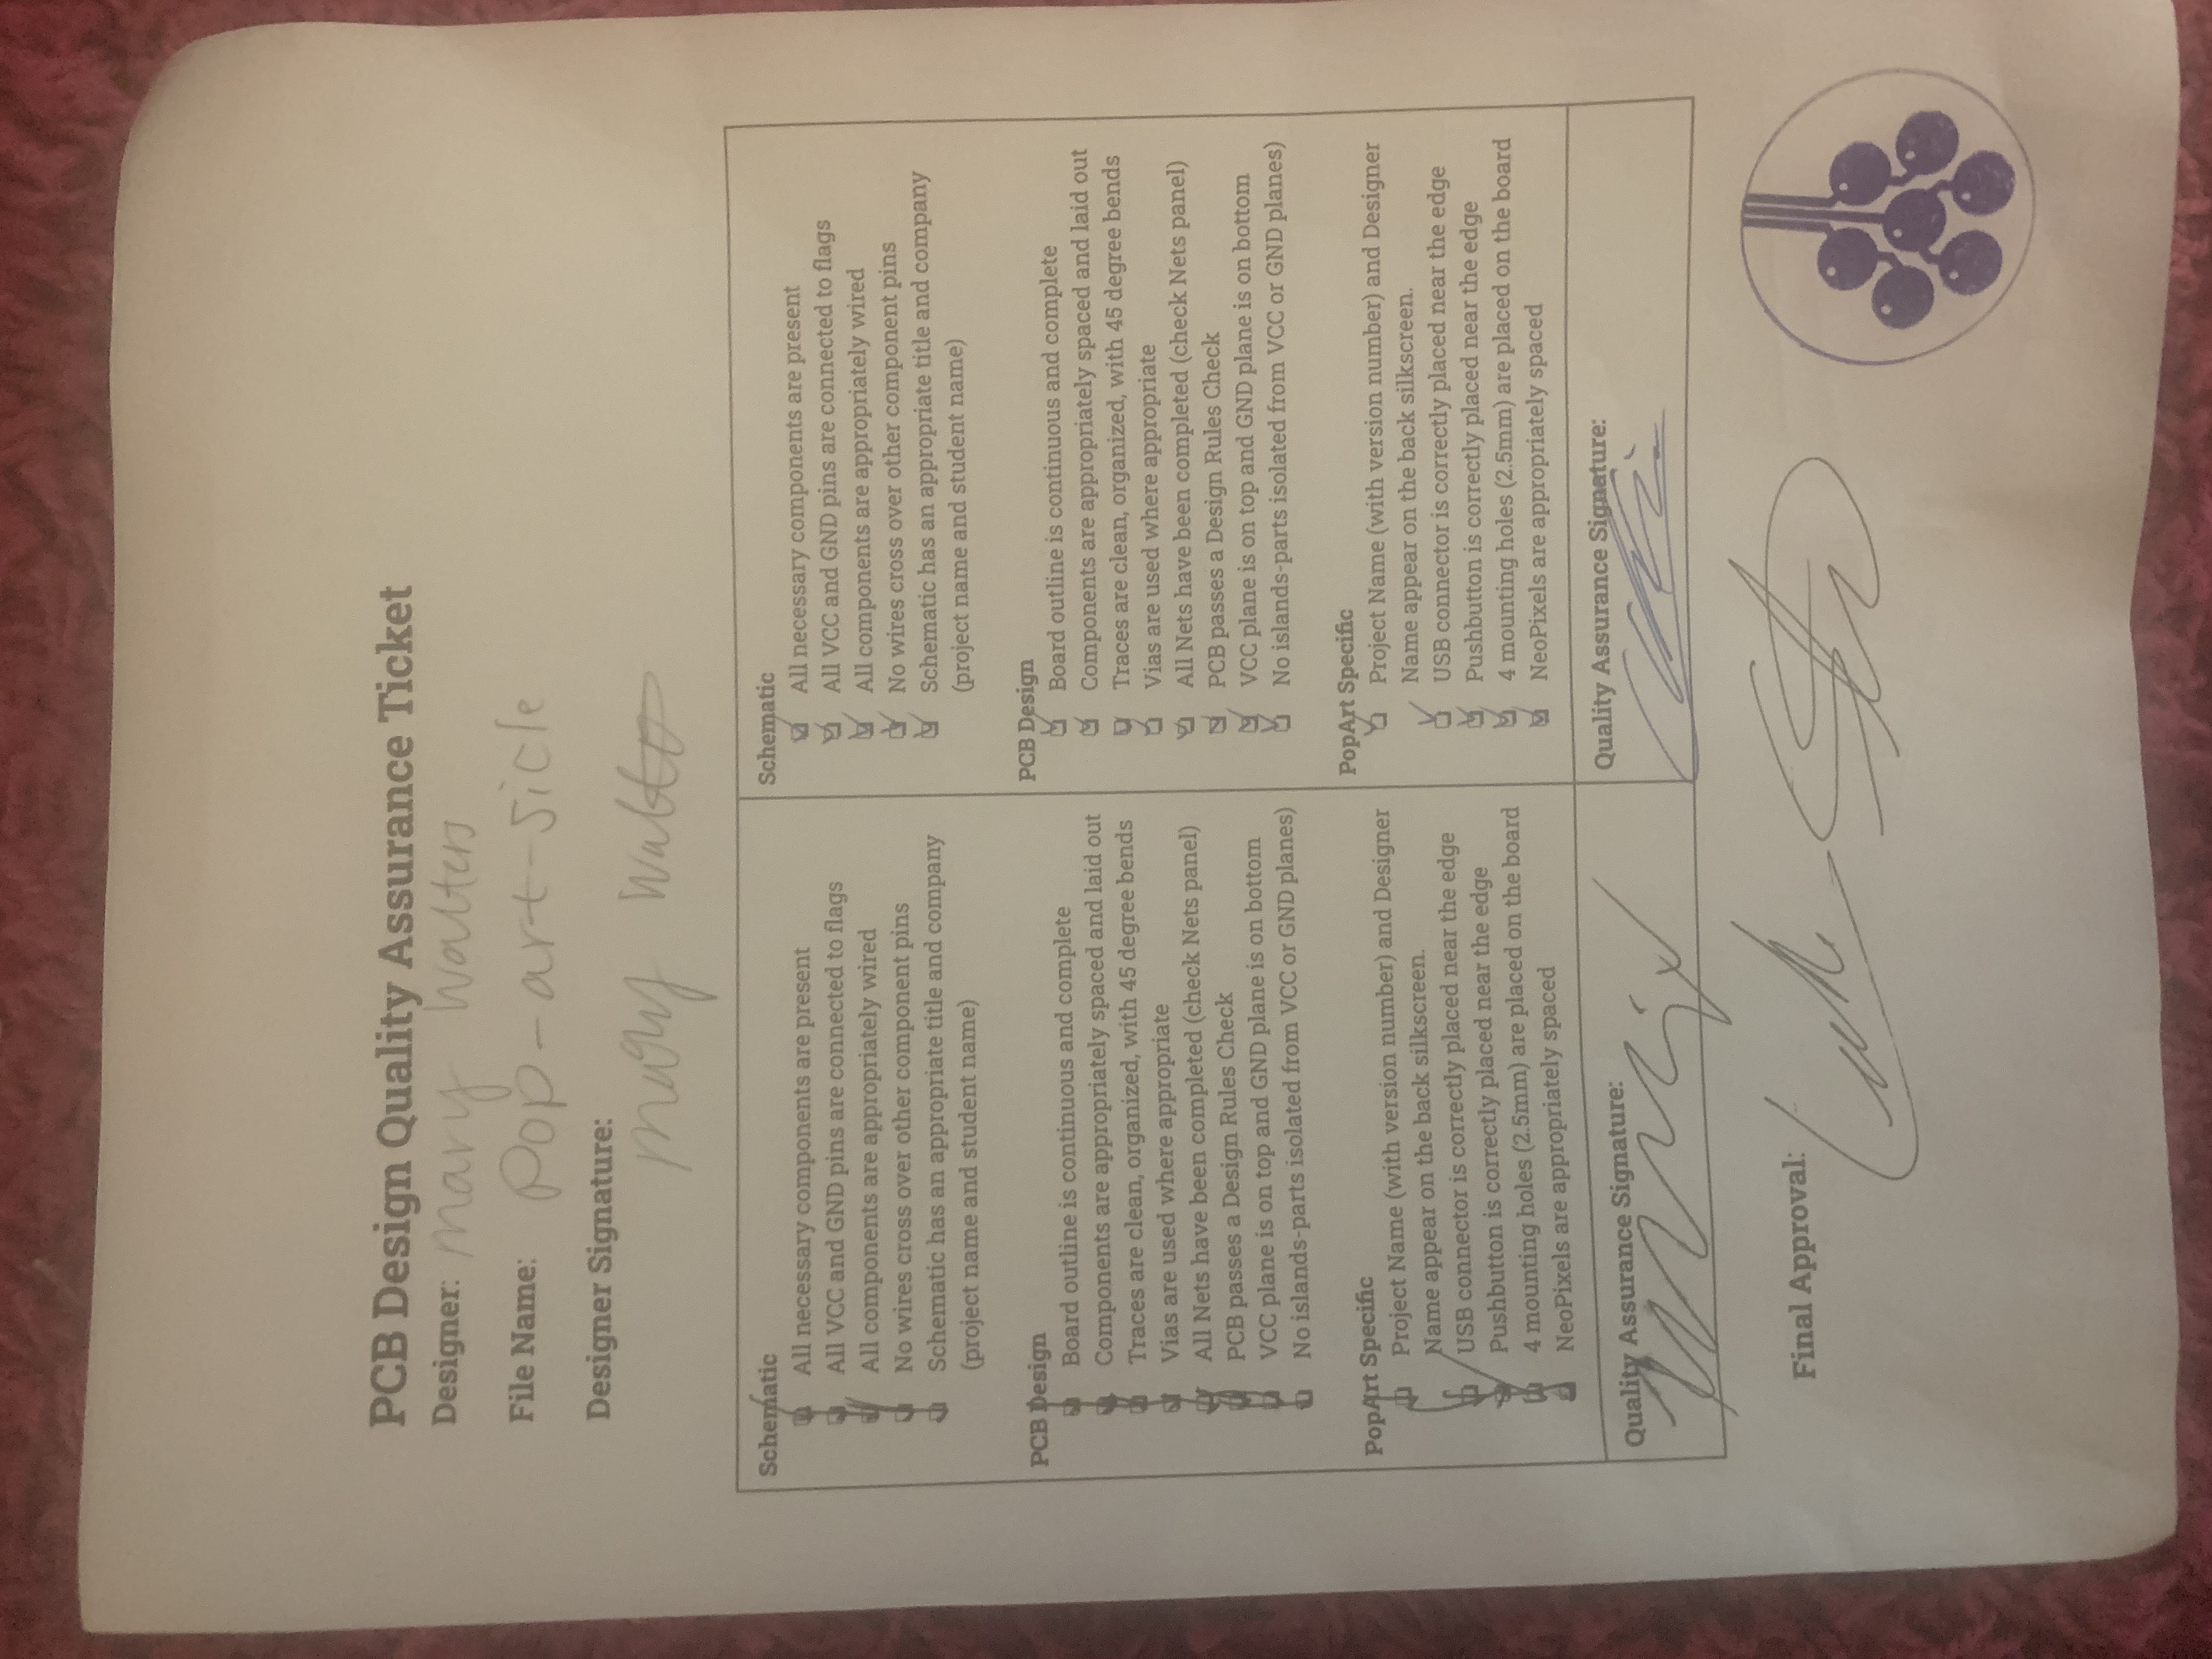 PCB Design Quality Assurance Ticket
Designer: Mary Walters
File Name: Pop-art-sicle
Designer Signature:
Mary
Schematic
All necessary components are present
All VCC and GND pins are connected to flags
All components are appropriately wired
No wires cross over other component pins
Schematic has an appropriate title and company
(project name and student name)
PCB Design
Board outline is continuous and complete
Components are appropriately spaced and laid out
Traces are clean, organized, with 45 degree bends
Vias are used where appropriate
All Nets have been completed (check Nets panel)
PCB passes a Design Rules Check
VCC plane is on top and GND plane is on bottom
No islands-parts isolated from VCC or GND planes)
PopArt Specific
Project Name (with version number) and Designer
Name appear on the back silkscreen.
USB connector is correctly placed near the edge
Pushbutton is correctly placed near the edge
4 mounting holes (2.5mm) are placed on the board
NeoPixels are appropriately spaced
Quality Assurance Signature:
Schematic
All necessary components are present
All VCC and GND pins are connected to flags
All components are appropriately wired
No wires cross over other component pins
Schematic has an appropriate title and company
(project name and student name)
PCB Design
Board outline is continuous and complete
Components are appropriately spaced and laid out
Traces are clean, organized, with 45 degree bends
Vias are used where appropriate
All Nets have been completed (check Nets panel)
PCB passes a Design Rules Check
VCC plane is on top and GND plane is on bottom
No islands-parts isolated from VCC or GND planes)
PopArt Specific
Project Name (with version number) and Designer
Name appear on the back silkscreen.
USB connector is correctly placed near the edge
Pushbutton is correctly placed near the edge
4 mounting holes (2.5mm) are placed on the board
NeoPixels are appropriately spaced
Quality Assurance Signature:
Final Approval: